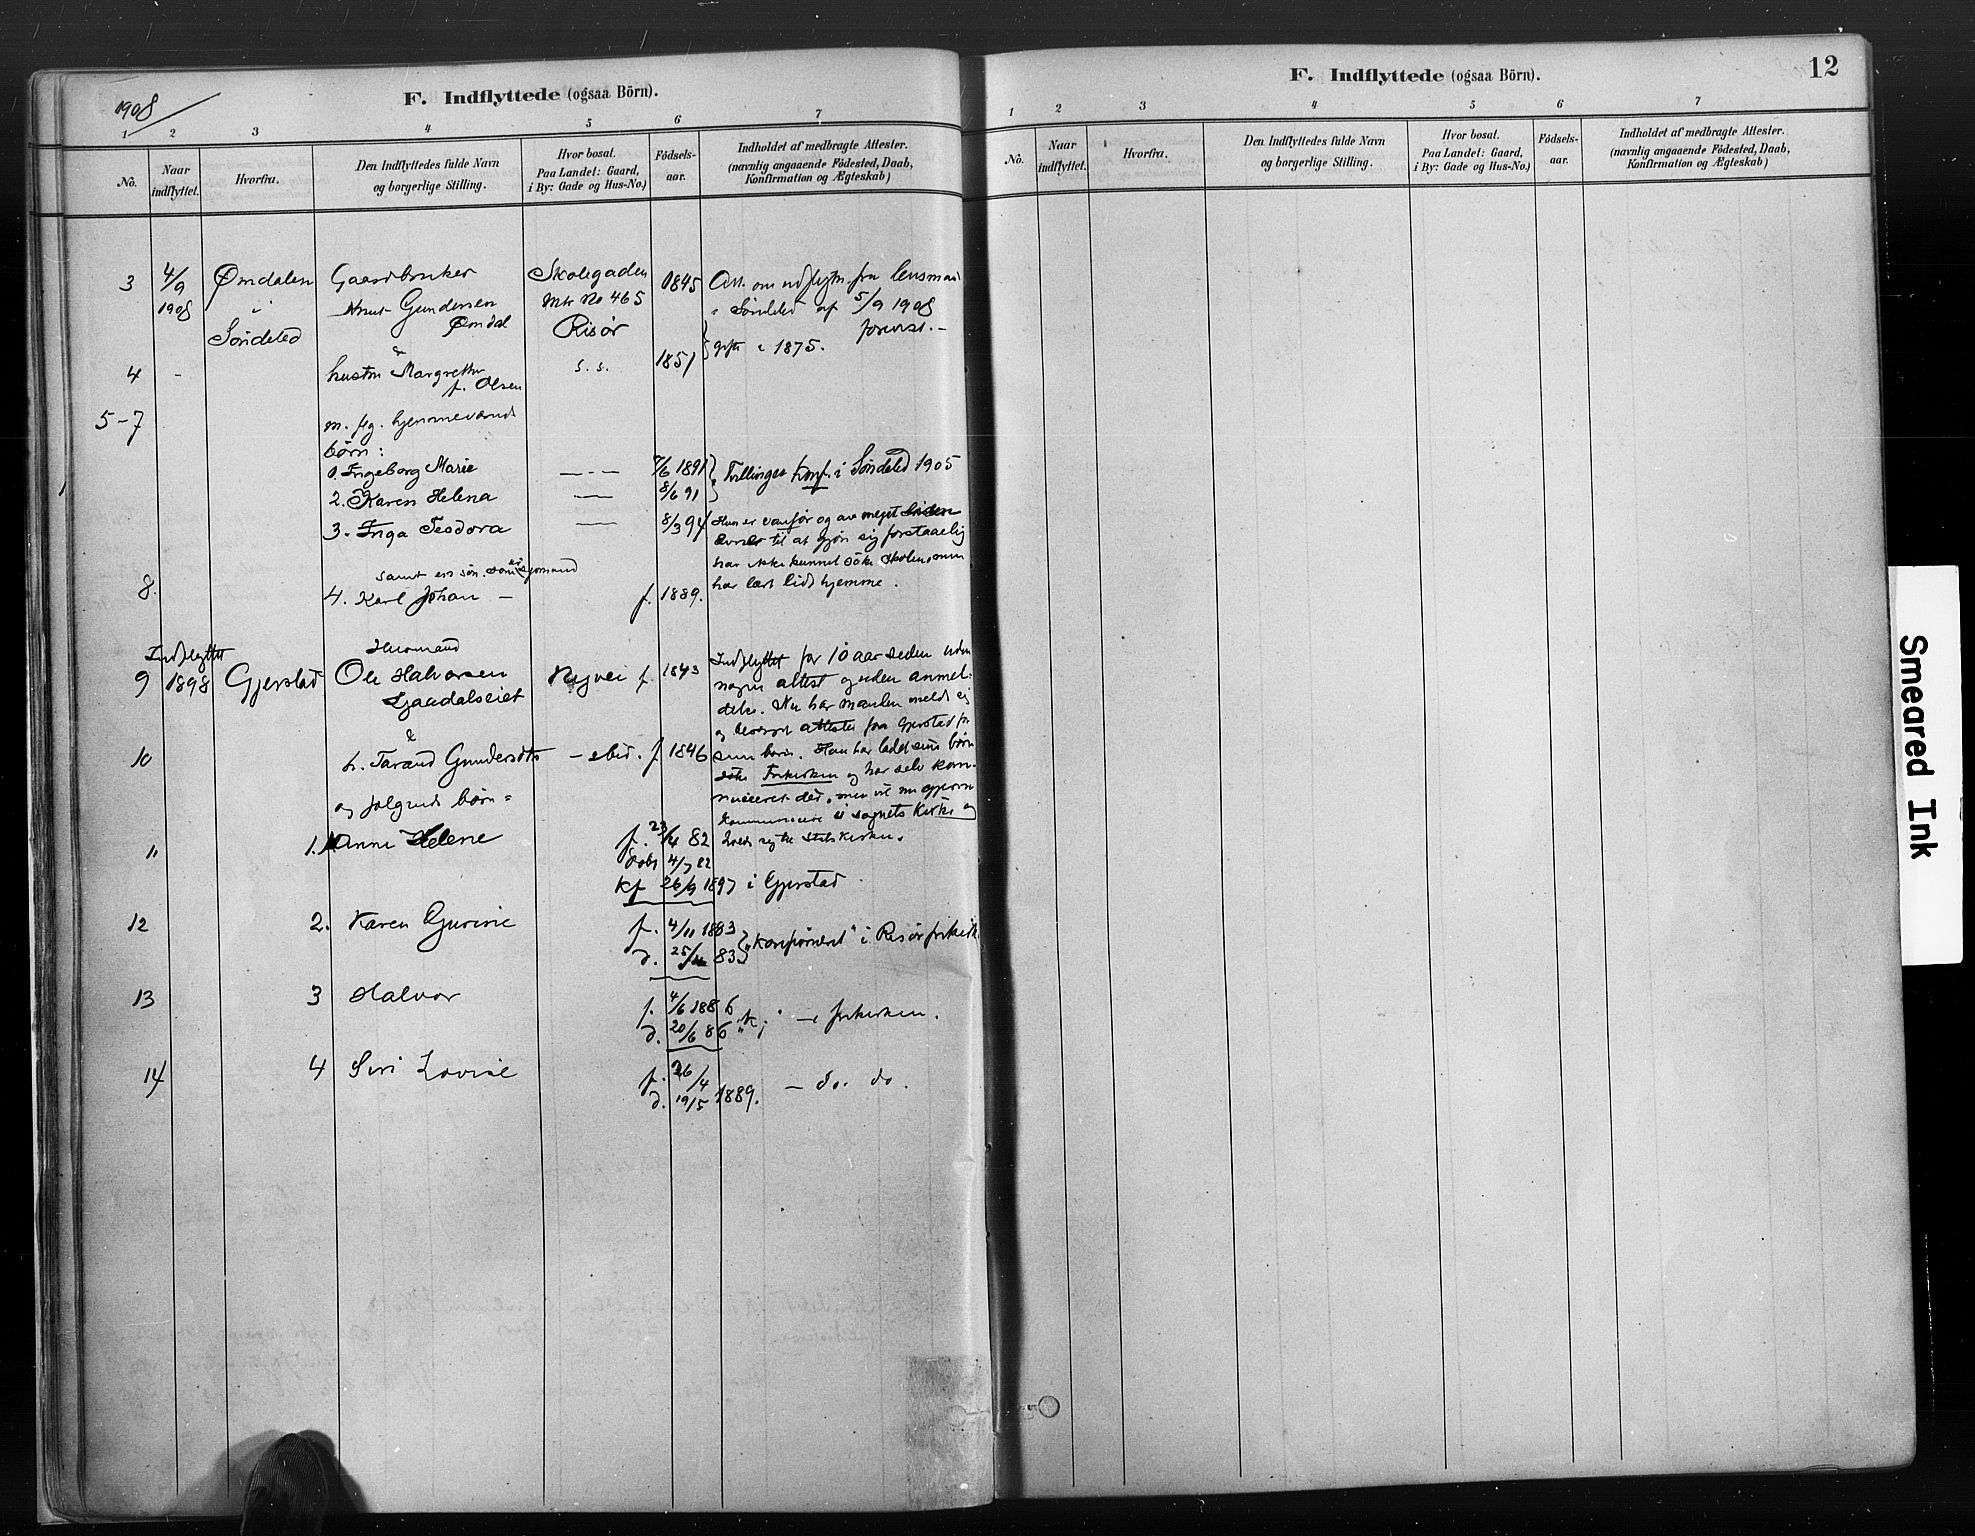 1908
F. Indflyttede (ogsaa Börn).
1 2 3 4 5 6 7
No.
Naar indflyttet.
Hvorfra.
Den Indflyttedes fulde Navn og borgerlige Stilling.
Hvor bosat. Paa Landet: Gaard, i By: Gade og Hus-No.)
Fódsels-aar.
Indholdet af medbragte Attester. (navnlig angaaende Fódested, Daab, Konfirmation og Ægteskab)
3 4/9 1908 Ømdalen i Söndeled
Gaardbruker
Knut Gundersen
Ømdal
Skolegaden
Mtr No 465
Risør
1845
Att. om udflytn. fra lensmand
i Söndeled af 5/9 1908
forevist. –
&
4 - hustru Margrethe
f. Olsen
s. s. 1851 gifte i 1875.
5-7
m. flg. hjemmeværende
børn:
1. Ingeborg Marie — 7/6 1891 Tvillinger konf. i Söndeled 1905
2. Karen Helena — 8/6 91
3. Inga Teodora — 8/3 94 Hun er vanfør og av meget liden
evner til at gjøre sig forstaaelig
har ikke kunnet søke skolen, men
har lært lidt hjemme.
samt en søn som er sjømand
8. 4. Karl Johan – f. 1889.
Indflyttet
9 1898 Gjerstad
Husmand
Ole Halvorsen
Nyvei f. 1843
Indflyttet for 10 aar siden uden
nogen attest og uden anmel-
delse. Nu har manden meldt sig
og attester fra Gjerstad for
sine børn. Han har ladet sine børn
søke Frikirken og har selv kom-
municeret der, men vil nu gjerne
kommunicere i sognets Kirke og
statskirken.
&
10 h. Tarand Gundersdtr – ibid. f 1846
og følgende børn =
11 1. Anne Helene f. 23/4 82
døbt 4/7 82
Kf 26/9 1897 i Gjerstad
12 2. Karen Gurine f. 4/11 1883
d. 25/ 83 „Konfirmeret" i Risør frikirk
13 3 Halvor f. 4/6 1886
d. 20/6 86 "K" – i frikirken.
14 4 Siri Lovise f. 26/4
d. 19/5 1889. – do. do.
F. Indflyttede (ogsaa Börn).
12
1 2 3 4 5 6 7
No.
Naar indflyttet.
Hvorfra.
Den Indflyttedes fulde Navn og borgerlige Stilling.
Hvor bosat. Paa Landet: Gaard, i By: Gade og Hus-No.)
Födsels-aar.
Indholdet af medbragte Attester. (navnlig angaaende Födested, Daab, Konfirmation og Ægteskab)
Smeared Ink